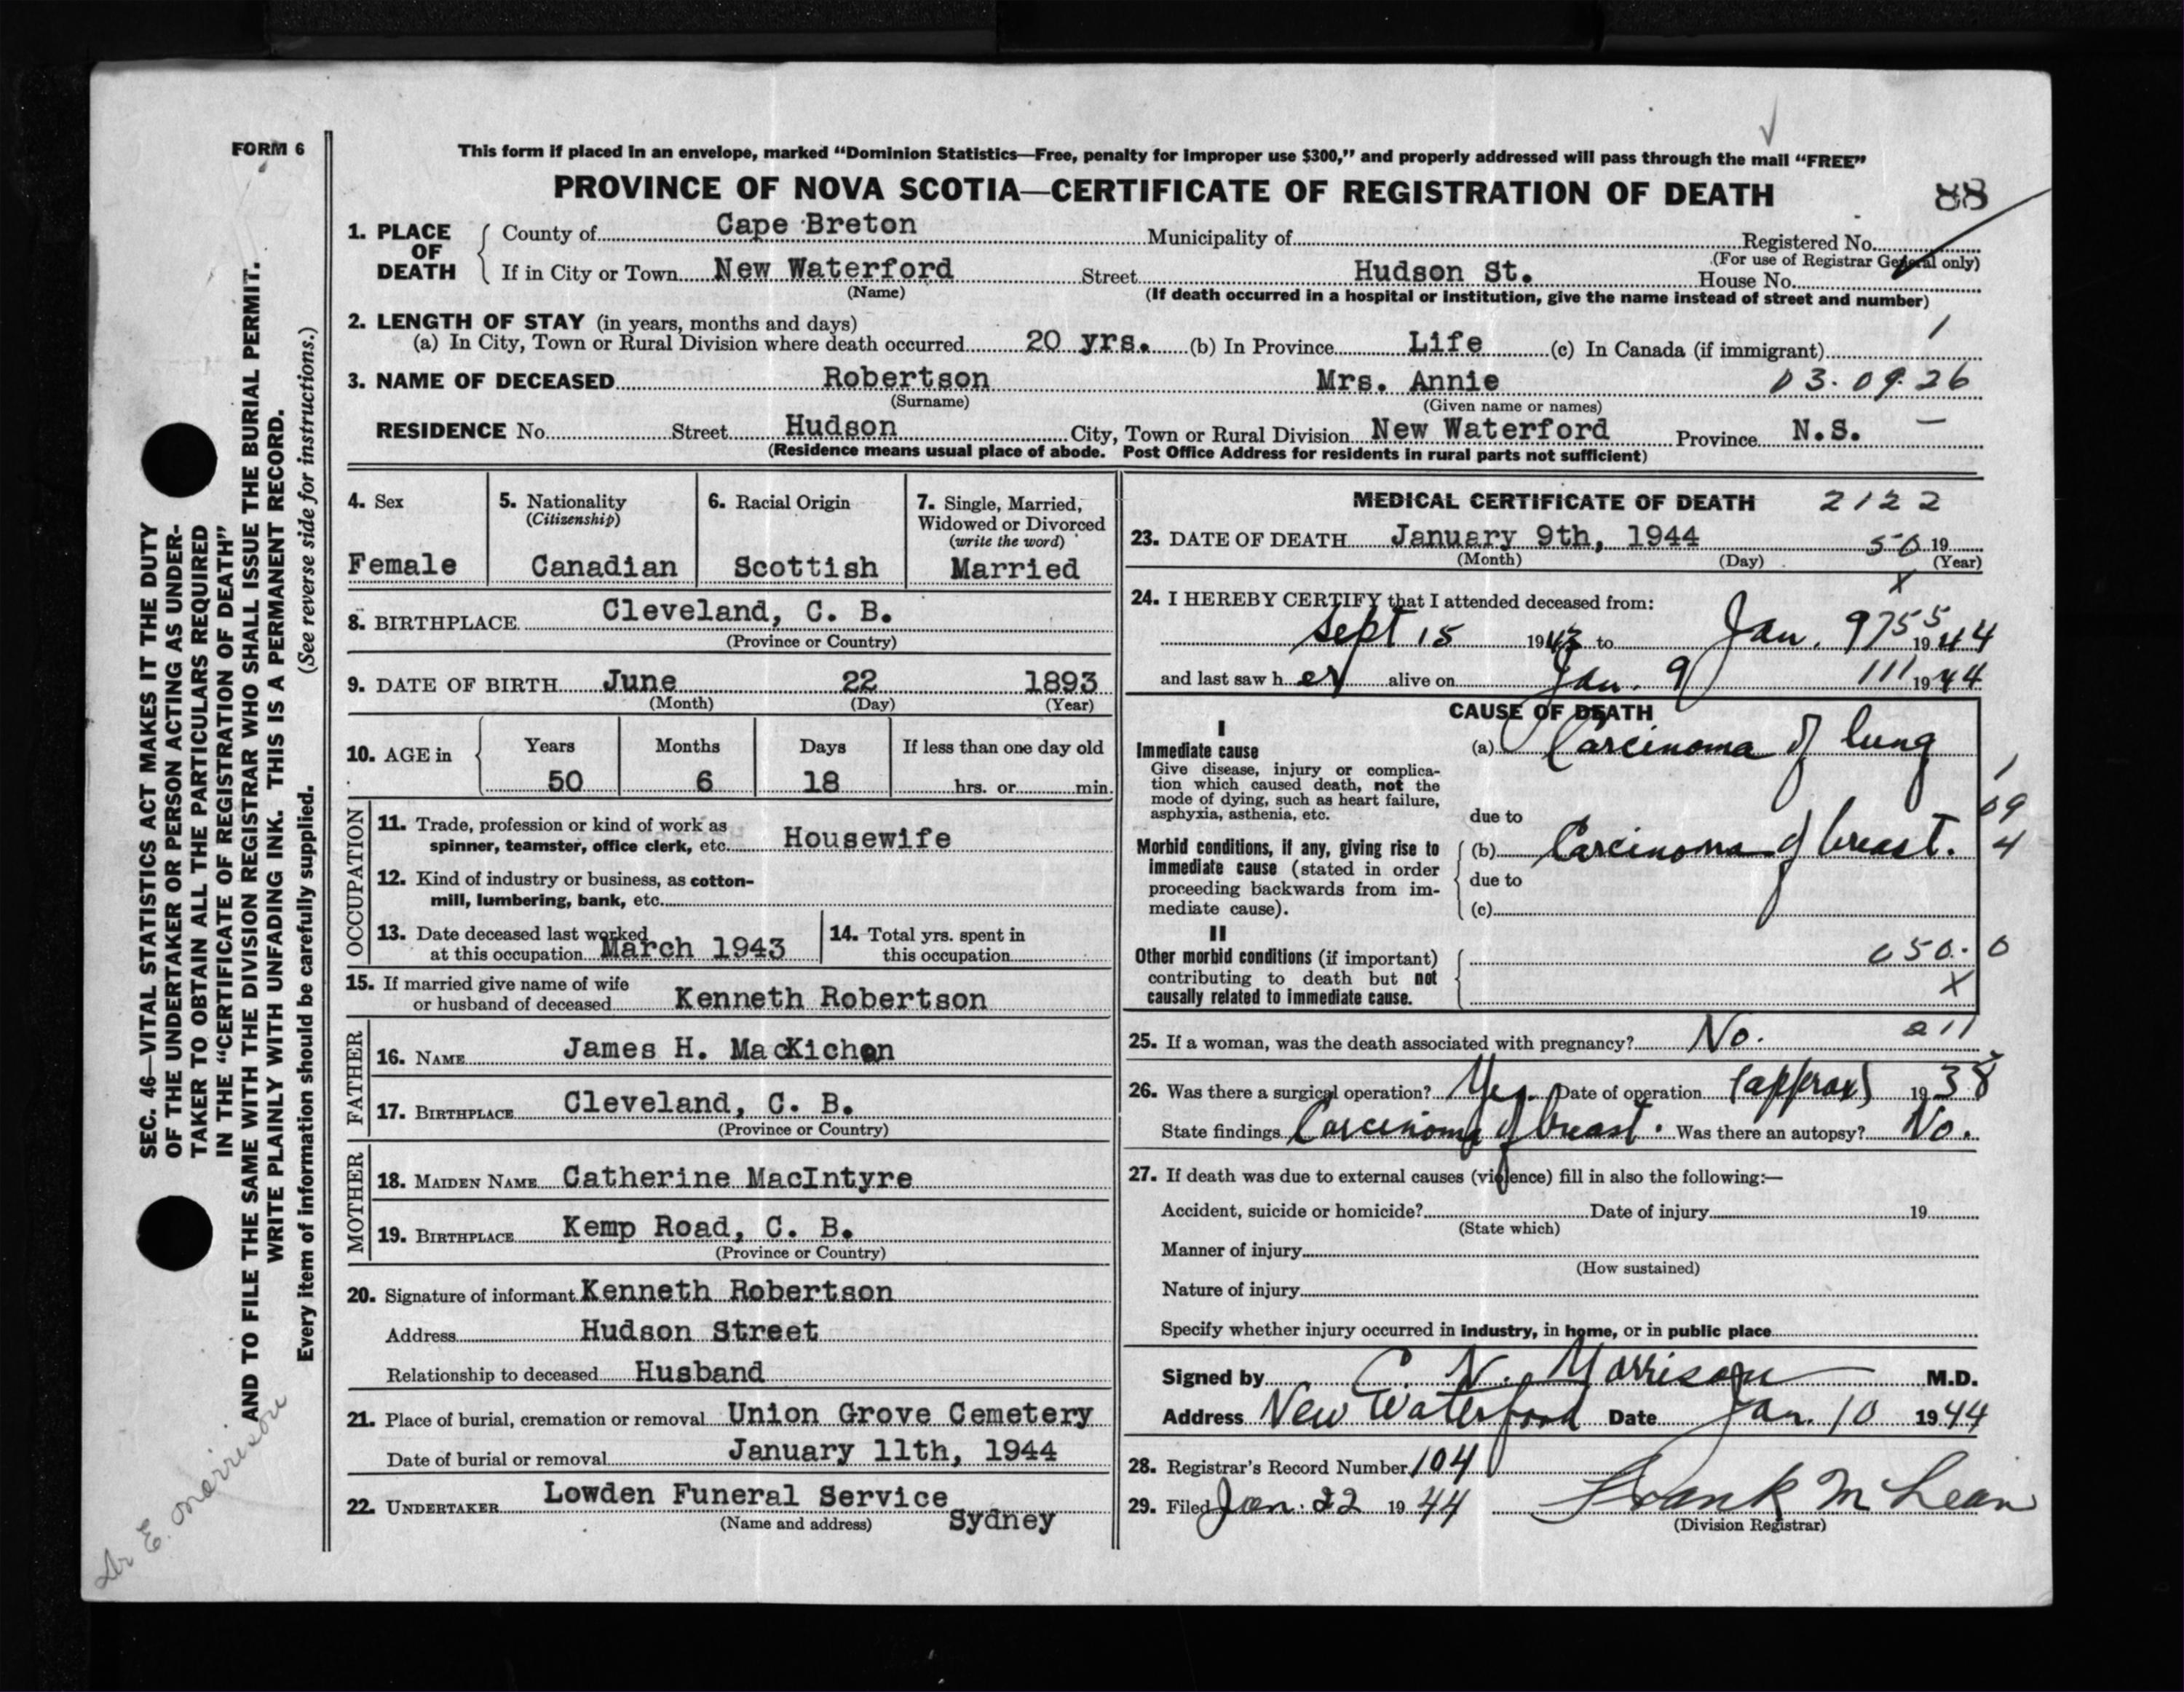 FORM 6
This form if placed in an envelope, marked “Dominion Statistics—Free, penalty for improper use $300,” and properly addressed will pass through the mail “FREE”
PROVINCE OF NOVA SCOTIA—CERTIFICATE OF REGISTRATION OF DEATH
88
1. PLACE OF DEATH
County of Cape Breton Municipality of Registered No.
(For use of Registrar General only)
If in City or Town New Waterford Street Hudson St. House No.
(Name) (If death occurred in a hospital or institution, give the name instead of street and number)
2. LENGTH OF STAY (in years, months and days) 1
(a) In City, Town or Rural Division where death occurred 20 yrs. (b) In Province Life (c) In Canada (if immigrant)
3. NAME OF DECEASED Robertson Mrs. Annie 03.09.26
(Surname) (Given name or names)
RESIDENCE No. Street Hudson City, Town or Rural Division New Waterford Province N.S. —
(Residence means usual place of abode. Post Office Address for residents in rural parts not sufficient)
4. Sex
Female
5. Nationality
(Citizenship)
Canadian
6. Racial Origin
Scottish
7. Single, Married,
Widowed or Divorced
(write the word)
Married
8. BIRTHPLACE Cleveland, C. B.
(Province or Country)
9. DATE OF BIRTH June 22 1893
(Month) (Day) (Year)
10. AGE in
Years Months Days If less than one day old
50 6 18 hrs. or min.
OCCUPATION
11. Trade, profession or kind of work as
spinner, teamster, office clerk, etc. Housewife
12. Kind of industry or business, as cotton-
mill, lumbering, bank, etc.
13. Date deceased last worked
at this occupation March 1943
14. Total yrs. spent in
this occupation
15. If married give name of wife
or husband of deceased Kenneth Robertson
FATHER
16. NAME James H. MacKichan
17. BIRTHPLACE Cleveland, C. B.
(Province or Country)
MOTHER
18. MAIDEN NAME Catherine MacIntyre
19. BIRTHPLACE Kemp Road, C. B.
(Province or Country)
20. Signature of informant Kenneth Robertson
Address Hudson Street
Relationship to deceased Husband
21. Place of burial, cremation or removal Union Grove Cemetery
Date of burial or removal January 11th, 1944
22. UNDERTAKER Lowden Funeral Service
(Name and address) Sydney
MEDICAL CERTIFICATE OF DEATH 2122
23. DATE OF DEATH January 9th, 1944 50 19
(Month) (Day) (Year)
X
24. I HEREBY CERTIFY that I attended deceased from:
Sept 15 1943 to Jan. 9 755 1944
and last saw h er alive on Jan. 9 111 1944
CAUSE OF DEATH
I
Immediate cause (a) Carcinoma of lung
Give disease, injury or complica-
tion which caused death, not the
mode of dying, such as heart failure,
asphyxia, asthenia, etc.
due to
1
09
4
Morbid conditions, if any, giving rise to (b) Carcinoma of breast.
immediate cause (stated in order
proceeding backwards from im-
mediate cause).
due to
(c)
II
Other morbid conditions (if important) 050.0
contributing to death but not
causally related to immediate cause. X
25. If a woman, was the death associated with pregnancy? No. 211
26. Was there a surgical operation? Yes. Date of operation (approx) 1938
State findings Carcinoma of breast. Was there an autopsy? No.
27. If death was due to external causes (violence) fill in also the following:—
Accident, suicide or homicide? Date of injury 19
(State which)
Manner of injury
(How sustained)
Nature of injury
Specify whether injury occurred in industry, in home, or in public place
Signed by C. N. Morrison M.D.
Address New Waterford Date Jan. 10 1944
28. Registrar's Record Number 104
29. Filed Jan. 22 1944 Frank McLean
(Division Registrar)
SEC. 46—VITAL STATISTICS ACT MAKES IT THE DUTY
OF THE UNDERTAKER OR PERSON ACTING AS UNDER-
TAKER TO OBTAIN ALL THE PARTICULARS REQUIRED
IN THE “CERTIFICATE OF REGISTRATION OF DEATH”
AND TO FILE THE SAME WITH THE DIVISION REGISTRAR WHO SHALL ISSUE THE BURIAL PERMIT.
WRITE PLAINLY WITH UNFADING INK. THIS IS A PERMANENT RECORD.
Every item of information should be carefully supplied. (See reverse side for instructions.)
Dr E. Morrison